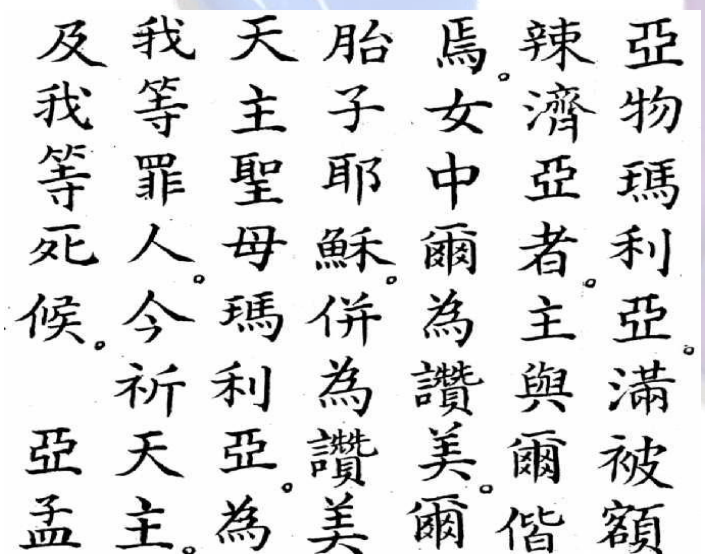 亞物瑪利亞。滿被額
辣濟亞者。主與爾偕
焉。女中爾為讚美。爾
胎子耶穌。併為讚美
天主聖母瑪利亞。為
我等罪人。今祈天主。
及我等死候。亞孟